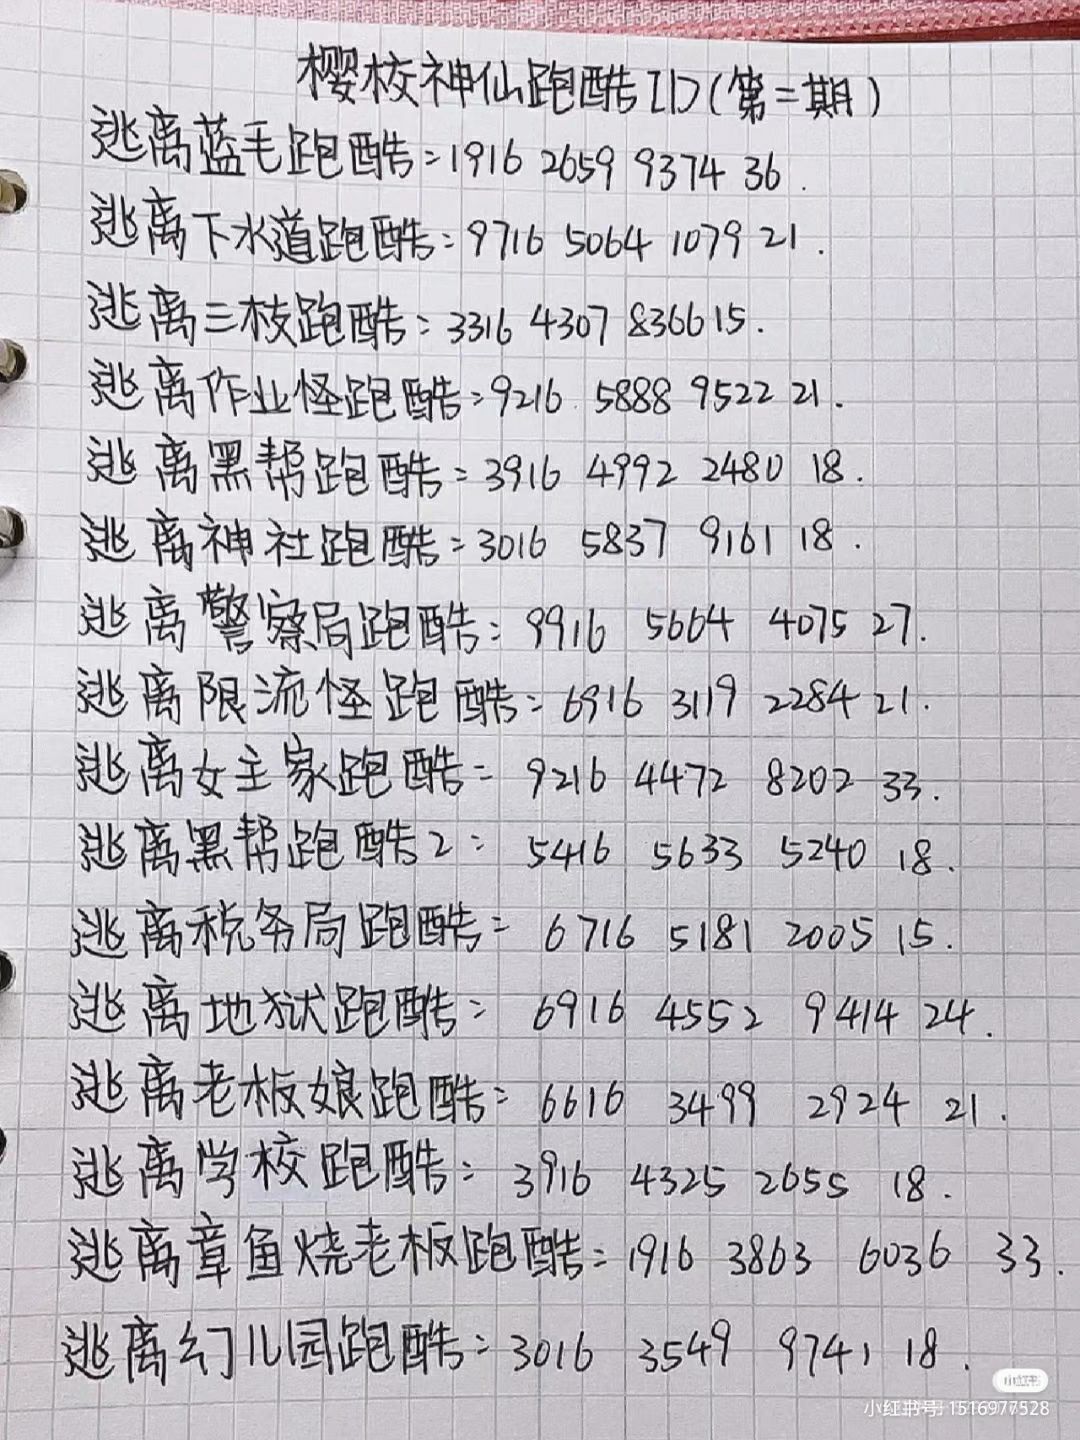 樱校神仙跑酷ID(第二期)
逃离蓝毛跑酷:1916 2659 9374 36.
逃离下水道跑酷:9716 5064 1079 21.
逃离三枝跑酷:3316 4307 8366 15.
逃离作业怪跑酷:9216 5888 9522 21.
逃离黑帮跑酷:3916 4992 2480 18.
逃离神社跑酷:3016 5837 9161 18.
逃离警察局跑酷:9916 5664 4075 27.
逃离限流怪跑酷:6916 3119 2284 21.
逃离女主家跑酷:9216 4472 8202 33.
逃离黑帮跑酷2:5416 5633 5240 18.
逃离税务局跑酷:6716 5181 2005 15.
逃离地狱跑酷:6916 4552 9414 24.
逃离老板娘跑酷:6616 3499 2924 21.
逃离学校跑酷:3916 4325 2655 18.
逃离章鱼烧老板跑酷:1916 3863 6036 33.
逃离幻儿园跑酷:3016 3549 9741 18.
小红书
小红书号:1516977528